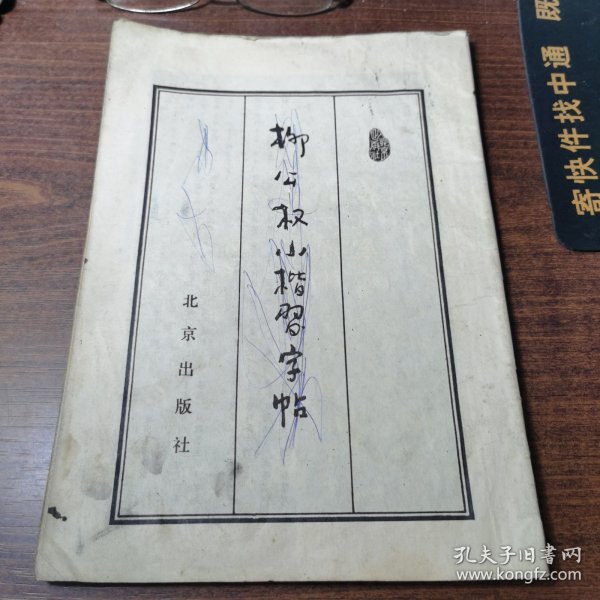 柳公权小楷習字帖
北京出版社
寄快件找中通 既
孔夫子旧書网
www.kongfz.com